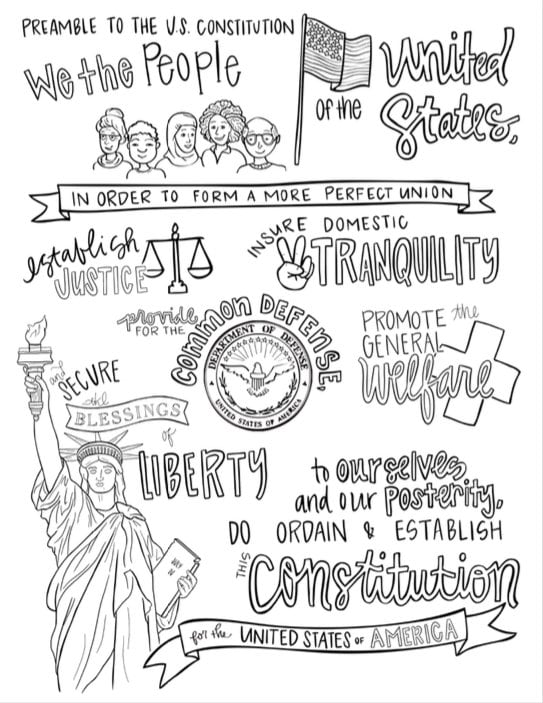 PREAMBLE TO THE U.S. CONSTITUTION
We the People
of the
United
States,
IN ORDER TO FORM A MORE PERFECT UNION
establish
JUSTICE
INSURE DOMESTIC
TRANQUILITY
provide
FOR THE
COMMON DEFENSE,
DEPARTMENT OF DEFENSE
UNITED STATES OF AMERICA
PROMOTE the
GENERAL
Welfare
and
SECURE
the
BLESSINGS
of
LIBERTY
to ourselves
and our Posterity,
DO ORDAIN & ESTABLISH
THIS
Constitution
for the UNITED STATES OF AMERICA